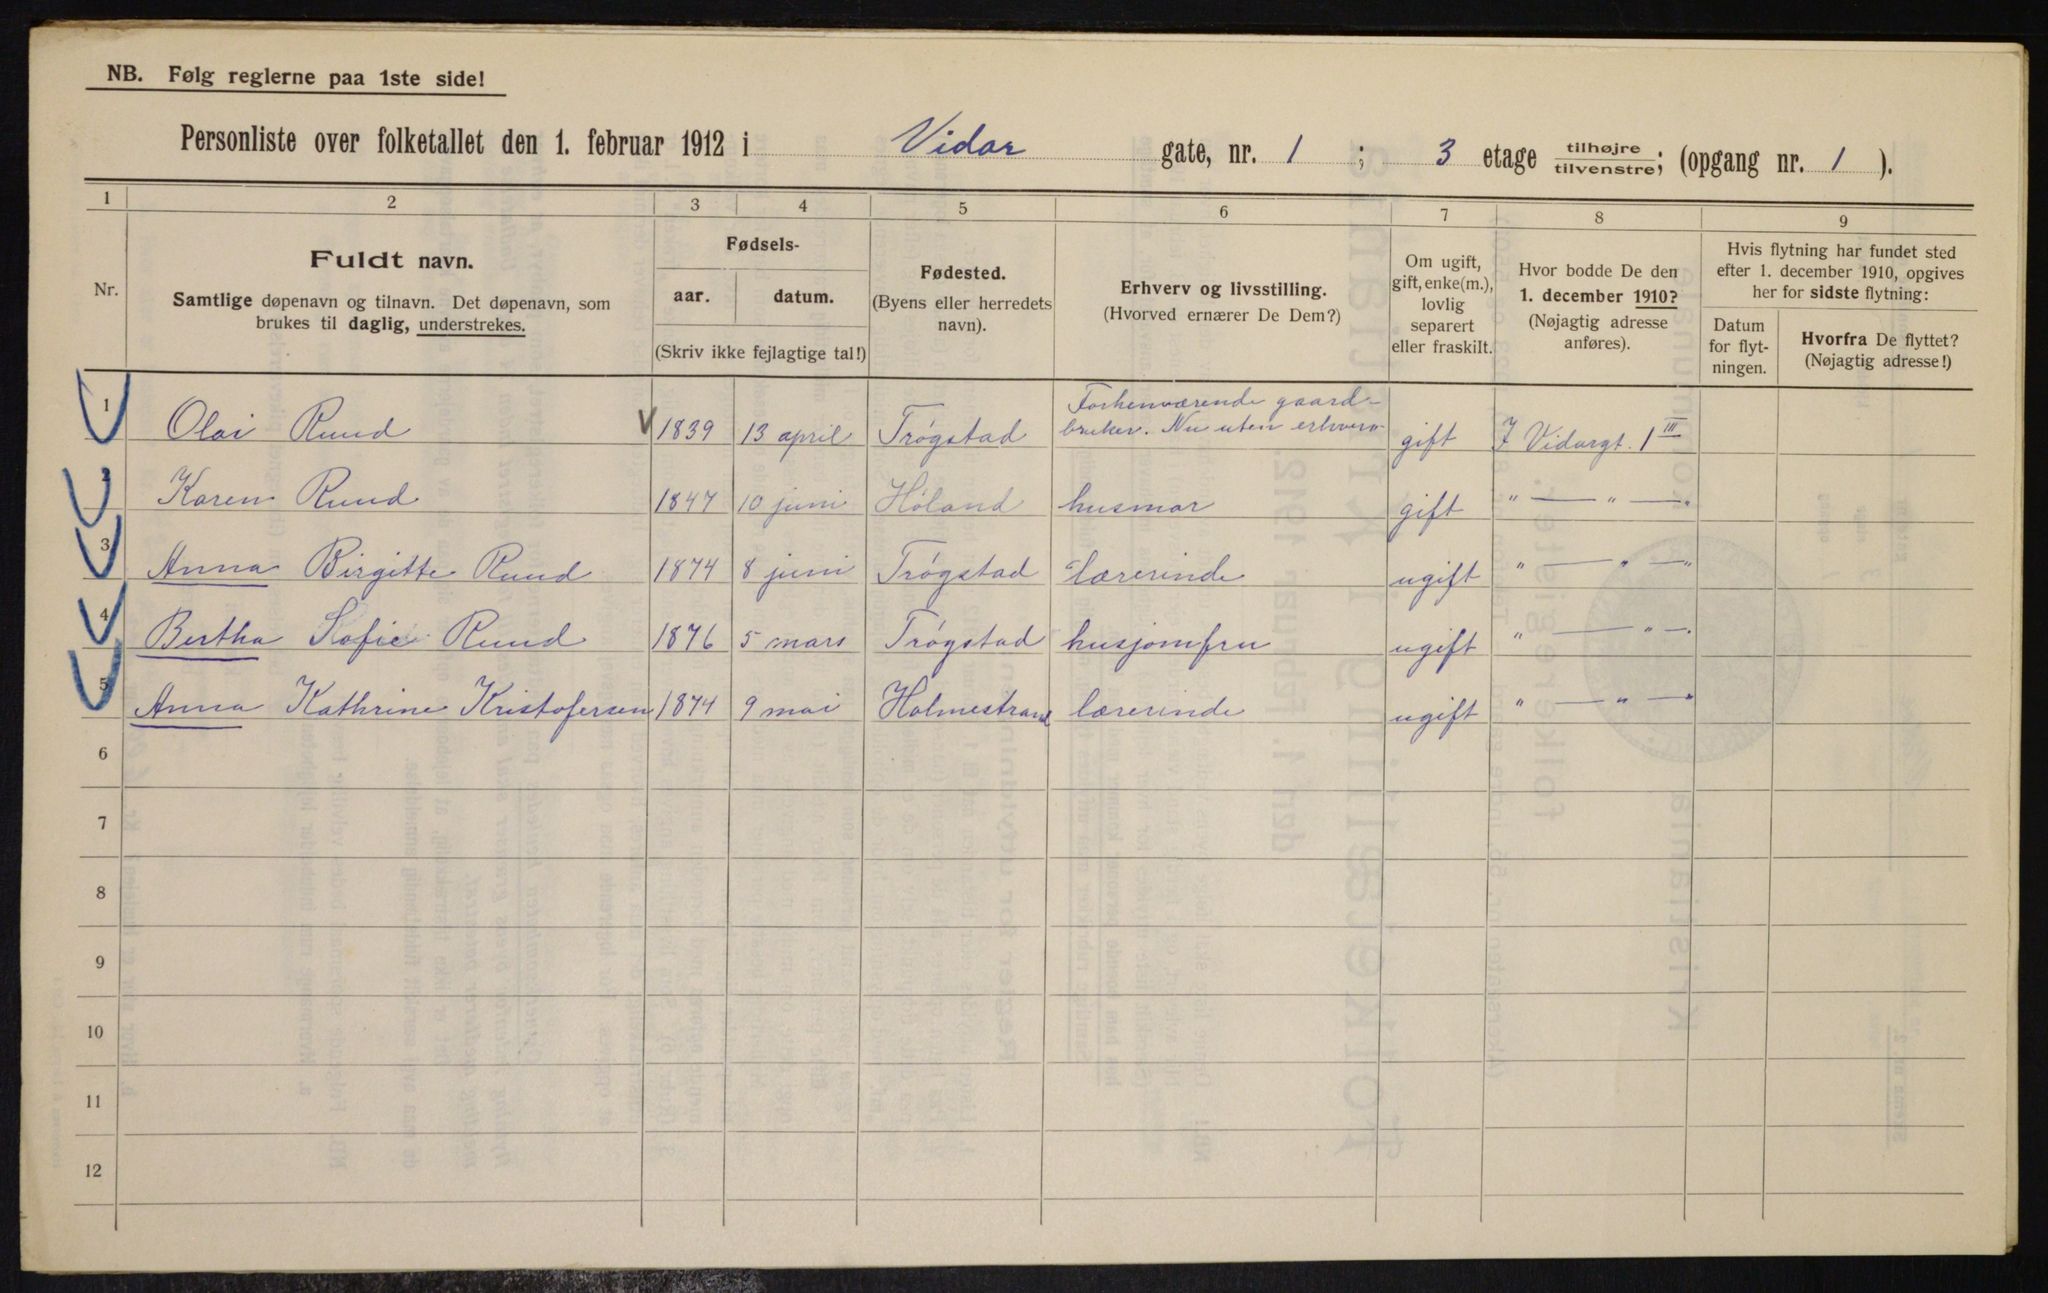 NB. Følg reglerne paa 1ste side!
Personliste over folketallet den 1. februar 1912 i Vidar gate, nr. 1 ; 3 etage tilhøjre tilvenstre; (opgang nr. 1 ).
1 2 3 4 5 6 7 8 9
Nr.
Fuldt navn.
Samtlige døpenavn og tilnavn. Det døpenavn, som
brukes til daglig, understrekes.
Fødsels-
aar. datum.
(Skriv ikke fejlagtige tal!)
Fødested.
(Byens eller herredets
navn).
Erhverv og livsstilling.
(Hvorved ernærer De Dem?)
Om ugift,
gift, enke(m.),
lovlig
separert
eller fraskilt.
Hvor bodde De den
1. december 1910?
(Nøjagtig adresse
anføres).
Hvis flytning har fundet sted
efter 1. december 1910, opgives
her for sidste flytning:
Datum
for flyt-
ningen.
Hvorfra De flyttet?
(Nøjagtig adresse!)
1 Olai Ruud 1839 13 april Trøgstad Forhenværende gaard-
bruker. Nu uten erhverv gift I Vidargt. 1 III
2 Karen Ruud 1847 10 juni Høland husmor gift " — " —"
3 Anna Birgitte Ruud 1874 8 juni Trøgstad Lærerinde ugift " — " —"
4 Bertha Sofie Ruud 1876 5 mars Trøgstad husjomfru ugift " — " —"
5 Anna Kathrine Kristofersen 1874 9 mai Holmestrand lærerinde ugift " — " —"
6
7
8
9
10
11
12